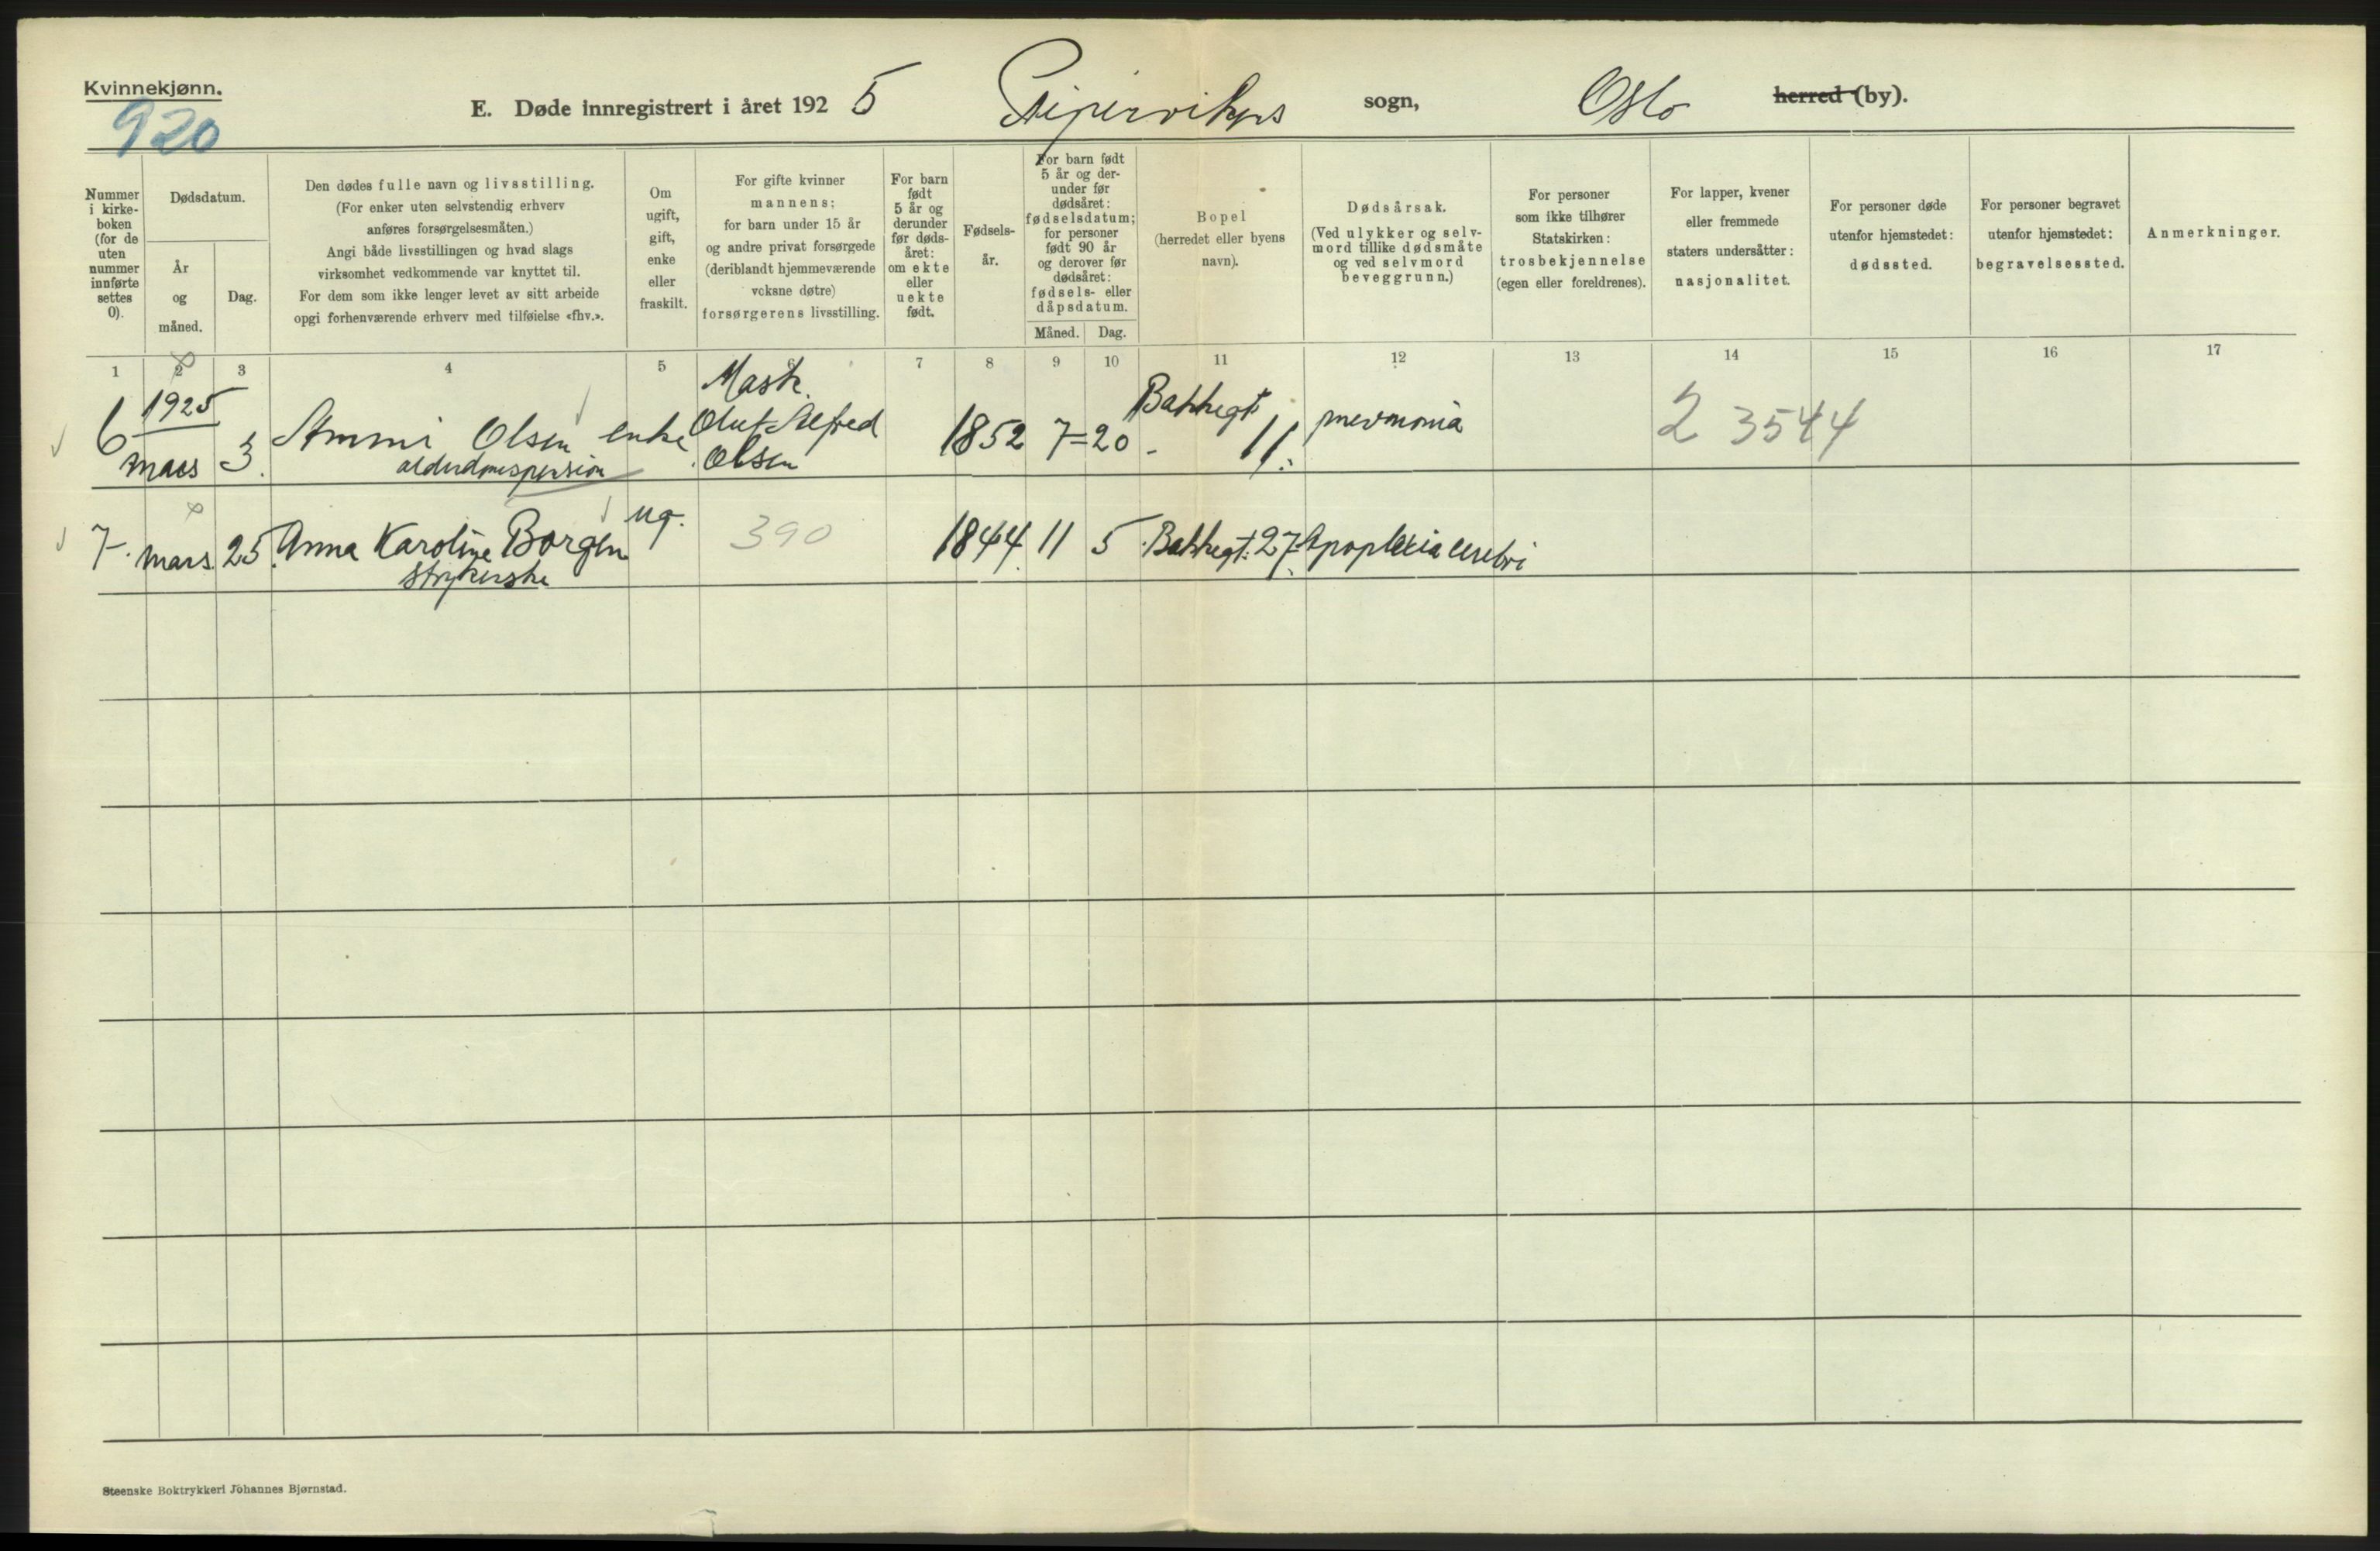 Kvinnekjønn.
920
E. Døde innregistrert i året 1925 Pipervikens sogn, Oslo herred (by).
Nummer i kirke-boken (for de uten nummer innførte settes 0).
Dødsdatum.
År og måned.
Dag.
Den dødes fulle navn og livsstilling.
(For enker uten selvstendig erhverv
anføres forsørgelsesmåten.)
Angi både livsstillingen og hvad slags
virksomhet vedkommende var knyttet til.
For dem som ikke lenger levet av sitt arbeide
opgi forhenværende erhverv med tilføielse «fhv.».
Om
ugift,
gift,
enke
eller
fraskilt.
For gifte kvinner
mannens;
for barn under 15 år
og andre privat forsørgede
(deriblandt hjemmeværende
voksne døtre)
forsørgerens livsstilling.
For barn
født
5 år og
derunder
før døds-
året:
om ekte
eller
uekte
født.
Fødsels-
år.
For barn født
5 år og der-
under før
dødsåret:
fødselsdatum;
for personer
født 90 år
og derover før
dødsåret:
fødsels- eller
dåpsdatum.
Måned.
Dag.
Bopel
(herredet eller byens
navn).
Dødsårsak.
(Ved ulykker og selv-
mord tillike dødsmåte
og ved selvmord
beveggrunn.)
For personer
som ikke tilhører
Statskirken:
trosbekjennelse
(egen eller foreldrenes).
For lapper, kvener
eller fremmede
staters undersåtter:
nasjonalitet.
For personer døde
utenfor hjemstedet:
dødssted.
For personer begravet
utenfor hjemstedet:
begravelsessted.
Anmerkninger.
1 2 3 4 5 6 7 8 9 10 11 12 13 14 15 16 17
1925 Mask. Bakkegt.
6 mars 3. Ammi Olsen enke Oluf Alfred 1852 7 20 11. pnevmonia 2 3544
alderdomspension Olsen
7. mars 25. Anna Karoline Borgen ug. 390 1844 11 5 Bakkegt. 27. Apoplexia cerebri
strykerske
Steenske Boktrykkeri Johannes Bjørnstad.